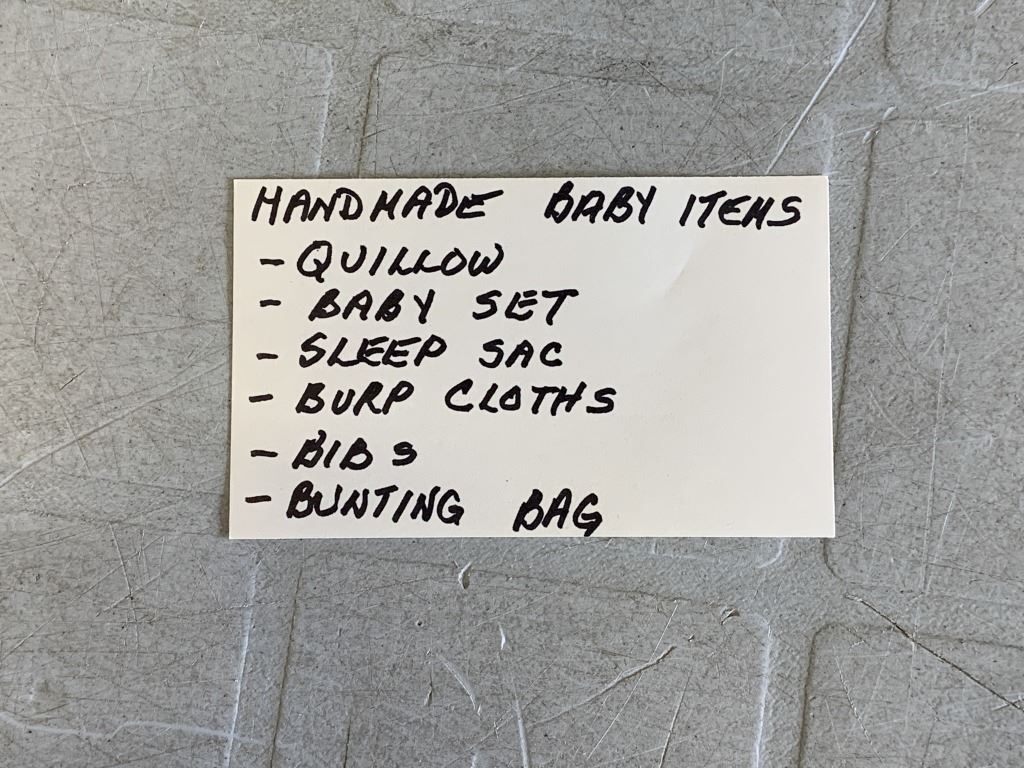 HANDMADE BABY ITEMS
- QUILLOW
- BABY SET
- SLEEP SAC
- BURP CLOTHS
- BIBS
- BUNTING BAG